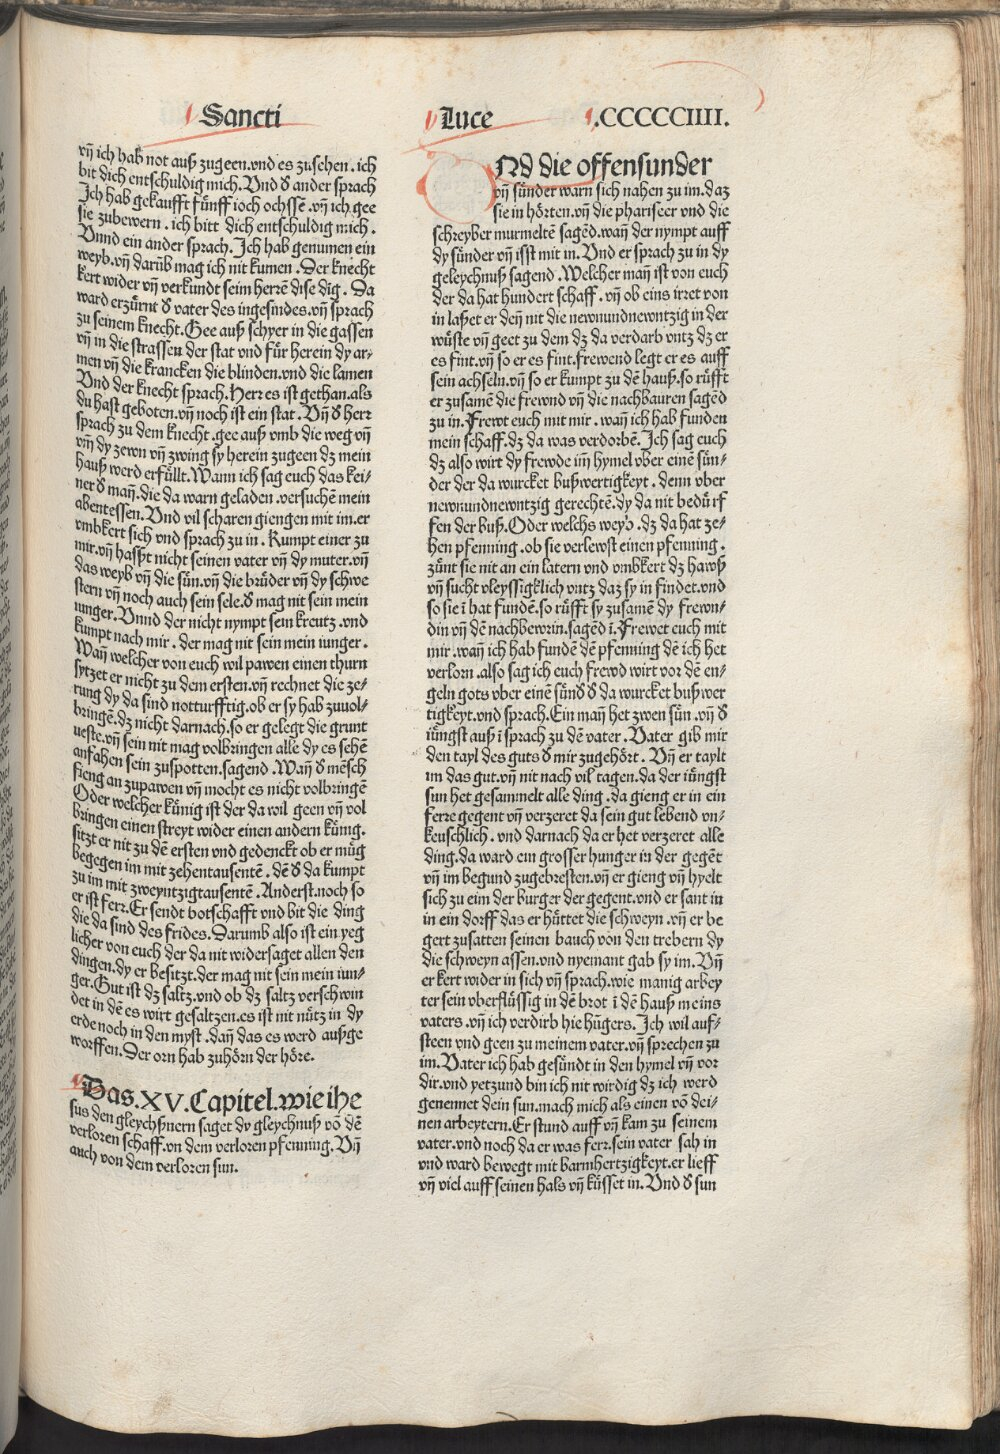 Sancti
Luce
.CCCCCIIII.
vn̄ ich hab not auß zugeen.vnd es zusehen.ich
bit dich entschuldig mich.Vnd d̕ ander sprach
Jch hab gekaufft fünff ioch ochssē.vn̄ ich gee
sie zubewern.ich bitt dich entschuldig mich.
Vnnd ein ander sprach.Jch hab genumen ein
weyb.vn̄ darūb mag ich nit kumen.Der knecht
kert wider vn̄ verkundt seim herrē dise dīg.Da
ward erzürnt d̕ vater des ingesindes.vn̄ sprach
zu seinem knecht.Gee auß schyer in die gassen
vn̄ in die strassen der stat vnd für herein dy ar⸗
men vn̄ die krancken die blinden.vnd die lamen
Vnd der knecht sprach.Herr es ist gethan.als
du hast geboten.vn̄ noch ist ein stat.Vn̄ d̕ herr
sprach zu dem knecht.gee auß vmb die weg vn̄
vn̄ dy zewn vn̄ zwing sy herein zugeen dz mein
hauß werd erfüllt.Wann ich sag euch das kei⸗
ner d̕ man̄.die da warn geladen.versuchē mein
abentessen.Vnd vil scharen giengen mit im.er
vmbkert sich vnd sprach zu in.Kumpt einer zu
mir.vn̄ haßt nicht seinen vater vn̄ dy muter.vn̄
das weyb vn̄ die sün.vn̄ die brüder vn̄ dy schwe
stern vn̄ noch auch sein sele.d̕ mag nit sein mein
iunger.Vnnd der nicht nympt sein kreutz.vnd
kumpt nach mir.der mag nit sein mein iunger.
Wan̄ welcher von euch wil pawen einen thurn
sytzet er nicht zu dem ersten.vn̄ rechnet die ze⸗
rung dy da sind notturfftig.ob er sy hab zuuol⸗
bringē.dz nicht darnach.so er gelegt die grunt
ueste.vn̄ sein nit mag volbringen alle dy es sehē
anfahen sein zuspotten.sagend.Wan̄ d̕ mēsch
fieng an zupawen vn̄ mocht es nicht volbringē
Oder welcher künig ist der da wil geen vn̄ vol
bringen einen streyt wider einen andern künig.
sitzt er nit zu dē ersten vnd gedenckt ob er müg
begegen im mit zehentausentē.dē d̕ da kumpt
zu im mit zweyntzigtausentē.Anderst.noch so
er ist ferr.Er sendt botschafft vnd bit die ding
die da sind des frides.Darumb also ist ein yeg
licher von euch der da nit widersaget allen den
dingen.dy er besitzt.der mag nit sein mein iun⸗
ger.Gut ist dz saltz.vnd ob dz saltz verschwin
det in dē es wirt gesaltzen.es ist nit nütz in dy
erde noch in den myst.dan̄ das es werd außge
worffen.Der orn hab zuhörn der höre.
Das.XV.Capitel.wie ihe
sus den gleychßnern saget dy gleychnuß vō dē
verloren schaff.vn dem verloren pfenning.Vn̄
auch von dem verloren sun.
Nd die offensunder
vn̄ sünder warn sich nahen zu im.daz
sie in hörten.vn̄ die phariseer vnd die
schreyber murmeltē sagēd.wan̄ der nympt auff
dy sünder vn̄ isst mit in.Vnd er sprach zu in dy
geleychnuß sagend.Welcher man̄ ist von euch
der da hat hundert schaff.vn̄ ob eins irret von
in laßet er den̄ nit die newnundnewntzig in der
wüste vn̄ geet zu dem dz da verdarb vntz dz er
es fint.vn̄ so er es fint.frewend legt er es auff
sein achseln.vn̄ so er kumpt zu dē hauß.so rüfft
er zusamē die frewnd vn̄ die nachbauren sagēd
zu in.Frewt euch mit mir.wan̄ ich hab funden
mein schaff.dz da was verdorbē.Jch sag euch
dz also wirt dy frewde im̄ hymel vber einē sün⸗
der der da wurcket bußwertigkeyt.denn vber
newnundnewntzig gerechtē.dy da nit bedürf
fen der buß.Oder welchs weyb.dz da hat ze⸗
hen pfenning.ob sie verlewst einen pfenning.
zünt sie nit an ein latern vnd vmbkert dz hawß
vn̄ sucht vleyssigklich vntz daz sy in findet.vnd
so sie ī hat fundē.so rüfft sy zusamē dy frewn⸗
din vn̄ dē nachbewrin.sagēd ī.Frewet euch mit
mir.wan̄ ich hab fundē dē pfenning dē ich het
verlorn.also sag ich euch frewd wirt vor dē en⸗
geln gots vber einē sünd̕ d̕ da wurcket bußwer
tigkeyt.vnd sprach.Ein man̄ het zwen sün.vn̄ d̕
iüngst auß ī sprach zu dē vater.Vater gib mir
den tayl des guts d̕ mir zugehört.Vn̄ er taylt
im das gut.vn̄ nit nach vil tagen.da der iüngst
sun het gesammelt alle ding.da gieng er in ein
ferre gegent vn̄ verzeret da sein gut lebend vn⸗
keuschlich.vnd darnach da er het verzeret alle
ding.da ward ein grosser hunger in der gegēt
vn̄ im begund zugebresten.vn̄ er gieng vn̄ hyelt
sich zu eim der burger der gegent.vnd er sant in
in ein dorff das er hüttet die schweyn.vn̄ er be
gert zusatten seinen bauch von den trebern dy
die schweyn assen.vnd nyemant gab sy im.Vn̄
er kert wider in sich vn̄ sprach.wie manig arbey
ter sein vberflüssig in dē brot ī dē hauß meins
vaters.vn̄ ich verdirb hie hūgers.Jch wil auf⸗
steen vnd geen zu meinem vater.vn̄ sprechen zu
im.Vater ich hab gesündt in den hymel vn̄ vor
dir.vnd yetzund bin ich nit wirdig dz ich werd
genennet dein sun.mach mich als einen vō dei⸗
nen arbeytern.Er stund auff vn̄ kam zu seinem
vater.vnd noch da er was ferr.sein vater sah in
vnd ward bewegt mit barmhertzigkeyt.er lieff
vn̄ viel auff seinen hals vn̄ küsset in.Vnd d̕ sun